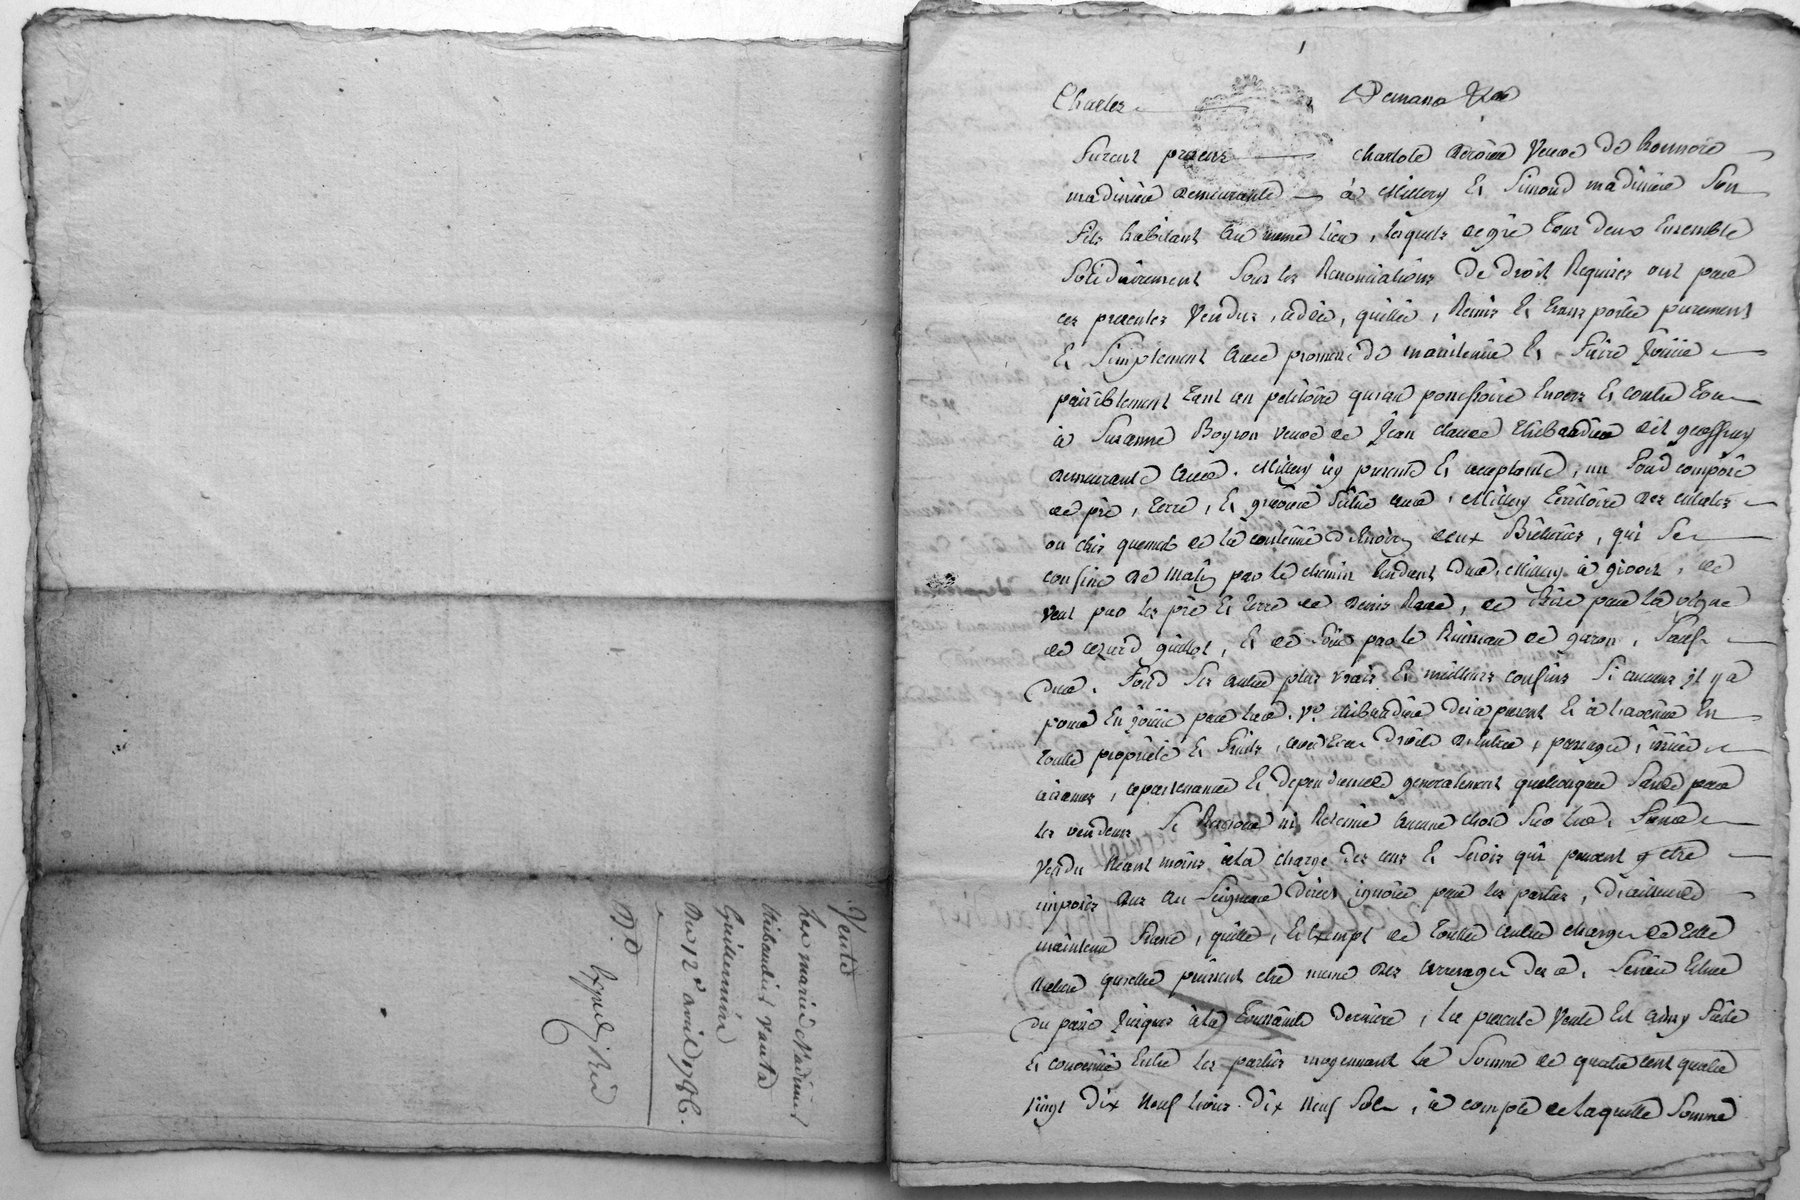 Vente
Les mariés Madinier
thibaudier Vante
Guillermin
Du 12e avril 1786.
Exped.
Charles
furent presens charlote veuve de honnoré
madinier demeurante à Millery Et Simond madinier Son
fils habitant Au meme lieu, lesquels de gré tous deux Ensemble
Solidairement Sous les Renonciations de droit Requises ont par
ces presentes Vendus, cédés, quittés, Remis Et transportés purement
Et Simplement Avec promesse de maintenir Et faire Joüir
paisiblement tant au petitoire qu'au possessoire Envers Et contre tous
à Suzanne Boyron veuve de Jean claude thibaudier dit geoffray
demeurante Audit Millery icy presente Et acceptante, un fond composé
de pré, terre, Et graviere Situé audit Millery territoire des
ou chez quemet de la contenüe d'Environ deux Bicherées, qui Se
confine de matin par le chemin tendant dud. Millery à givors, de
vent par les pré Et terre de denis, de bize par la vigne
de guillot, Et de Soir par le Ruisseau de garon, Sauf
dud. fond Ses autres plus vrais Et meilleurs confins Si aucuns il y a
pour En joüir par lad. Ve. thibaudier des a present Et à l'avenir En
toute propriété Et fruits, avec tous droits d'entrée, passages,
aisances, apartenances Et dependances generalement quelconques Sans par
les vendeurs Se Reserver ni Retenir Aucune chose Sur led. fond
Vendu Neant moins à la charge des cens Et Servis qui peuvent y etre
imposés dus au Seigneur direct ignoré par les parties, d'ailleurs
maintenu franc, quitte, Et Exempt de toutes autres charges de telle
Nature quelles puissent etre meme des arrerages desd. Servis
du passé Jusques à la toussaint derniere, La presente Vente Est ainsy faite
Et convenüe Entre les parties moyennant La Somme de quatre cent quatre
vingt dix Neuf livres dix Neuf Sols, à compte de laquelle Somme